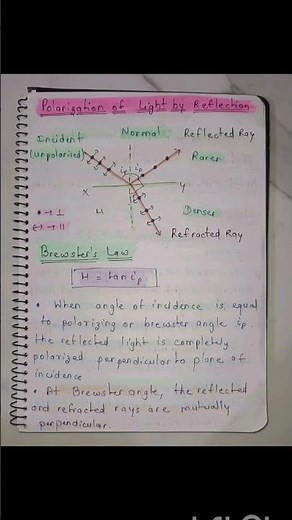 Polarization of Light by Reflection
Incident Normal Reflected Ray
(unpolarised) ip ip Rarer
X Y
μ Denser
• → ⊥
↔ → || Refracted Ray
Brewster's Law
μ = tan ip
• When angle of incidence is equal
to polarizing or brewster angle ip.
the reflected light is completely
polarized perpendicular to plane of
incidence
• At Brewster angle, the reflected
and refracted rays are mutually
perpendicular.